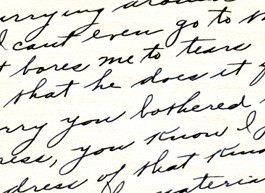 urrying around
I can't even go to t
t bores me to tears
that he does it
rry you bothered
ress, you know I
dress of that kind
materia